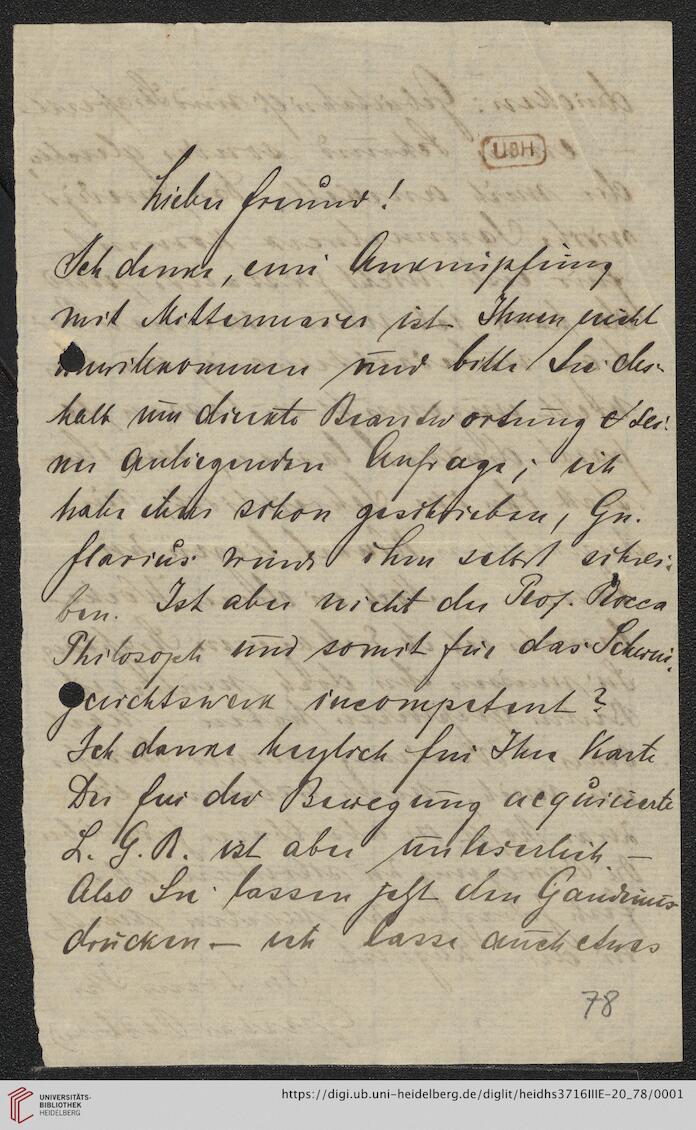 UBH
Lieber Freund!
Ich denke, eine Anknüpfung
mit Mittermaier ist Ihnen nicht
unwillkommen und bitte Sie des-
halb um direkte Beantwortung sei-
ner anliegenden Anfrage; ich
habe ihm schon geschrieben, Gn.
Flavius würde ihm selbst schrei-
ben. Ist aber nicht der Prof. Rocca
Philosoph und somit für das Schwur-
gerichtswerk incompetent?
Ich danke herzlich für Ihre Karte
Der für die Bewegung acquirierte
L. G. R. ist aber unleserlich –
Also Sie lassen jetzt den
drucken – ich lasse auch etwas
78
UNIVERSITÄTS-
BIBLIOTHEK
HEIDELBERG
https://digi.ub.uni-heidelberg.de/diglit/heidhs3716IIIE-20_78/0001